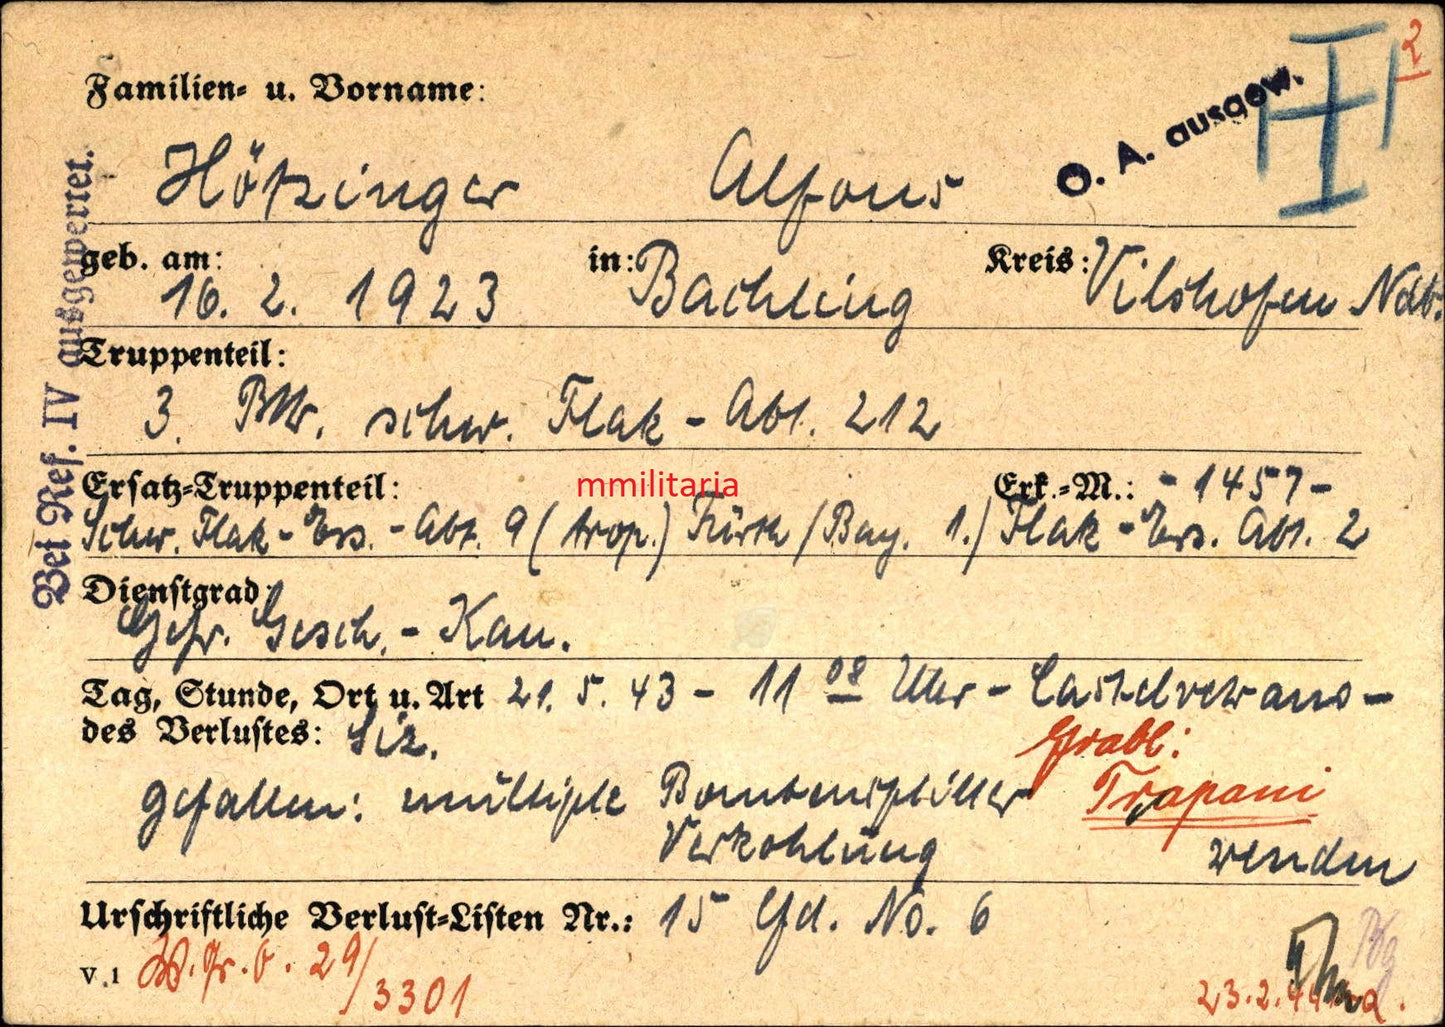 2
Familien- u. Vorname:
O. A. ausgew.
Hötzinger Alfons
geb. am: in: Kreis:
16. 2. 1923 Bachling Vilshofen Ndb.
Truppenteil:
3. Bttr. schw. Flak - Abt. 212
Ersatz-Truppenteil: Erk.-M.: - 1457 -
mmilitaria
Schw. Flak - Ers. - Abt. 9 (trop.) Fürth / Bay. 1./ Flak - Ers. Abt. 2
Dienstgrad:
Gefr. Gesch. - Kan.
Tag, Stunde, Ort u. Art 21. 5. 43 - 11 08 Uhr - Castelvetrano -
des Verlustes: Siz.
Grabl:
gefallen: multiple Bombensplitter Trapani
Verkohlung wenden
Urschriftliche Verlust-Listen Nr.: 15 lfd. No. 6
V. 1 29/3301
23.2.44
Bei Ref. IV ausgewertet.